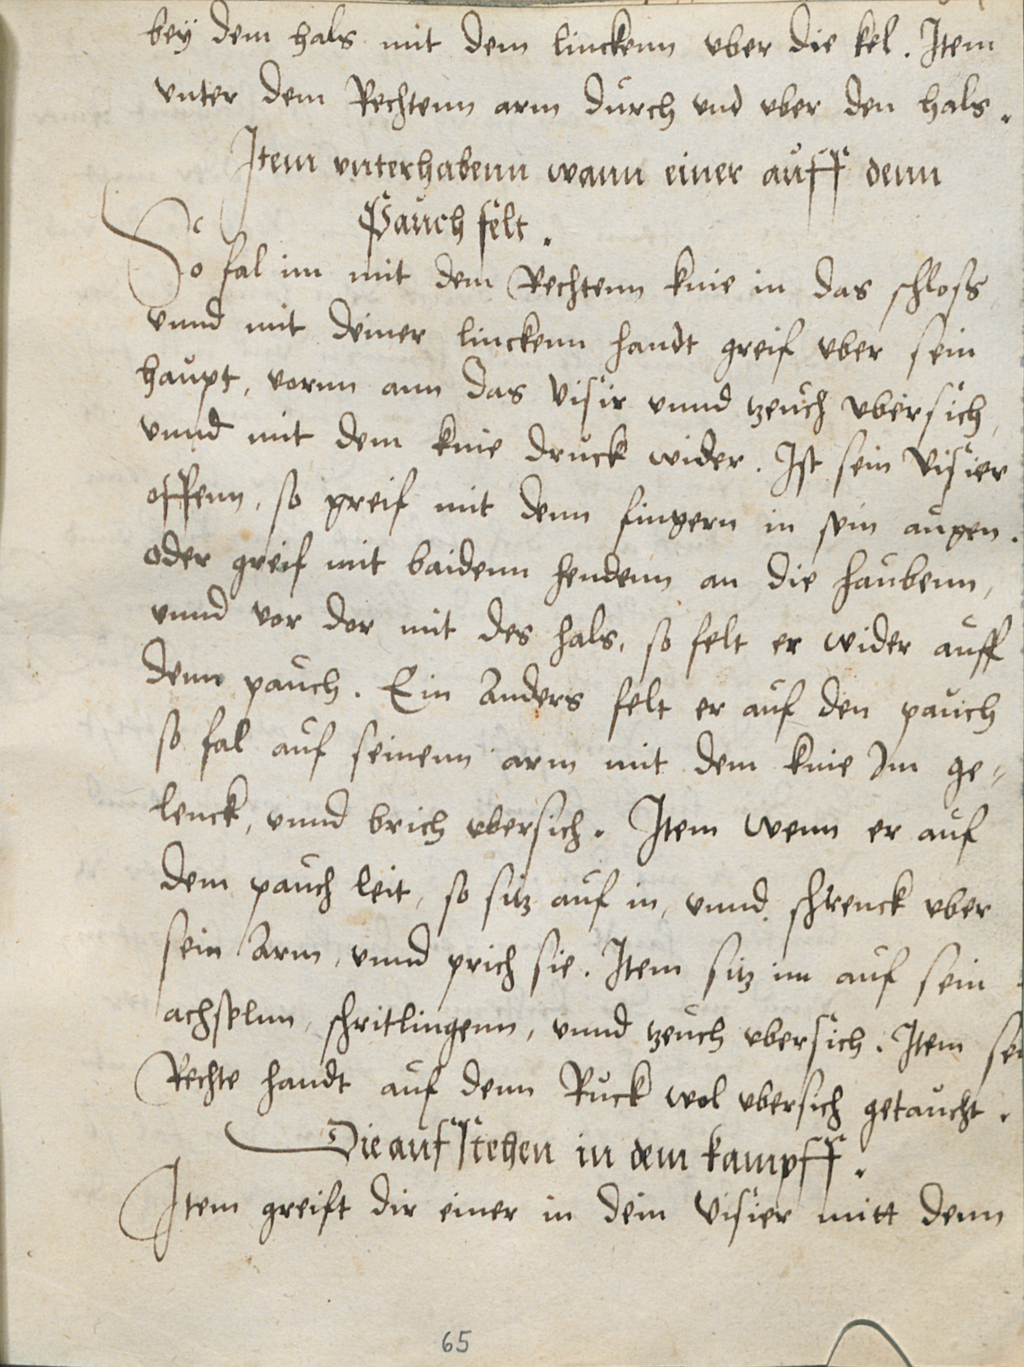 beÿ dem hals mit dem linckenn vber die kel. Item
vnter dem Rechtenn arm durch vnd vber den hals.
Item vnterhabenn wann einer auff denn
Pauch felt.
So fal im mit dem Rechtenn knie in das schloss
vnnd mit deiner linckenn handt greif vber sein
haupt, vornn ann das Visir vnnd tzeuch vbersich,
vnnd mit dem knie druck wider. Ist sein Visier
offenn, so greif mit denn fingern in sein augen.
oder greif mit baidenn hendenn an die haubenn,
vnnd vor der mit des hals, so felt er wider auff
denn pauch. Ein Anders felt er auf den pauch
so fal auf seinenn arm mit dem knie Im ge-
lenck, vnnd brich vbersich. Item wenn er auf
dem pauch leit, so sitz auf in, vnnd schrenck vber
sein Arm, vnnd prich sie. Item sitz im auf sein
achselnn, schritlingenn, vnnd tzeuch vbersich. Item sei
Rechte handt auf denn Ruck wol vbersich getaucht.
Die auf stehen in dem kampff.
Item greift dir einer in dein Visier mitt denn
65